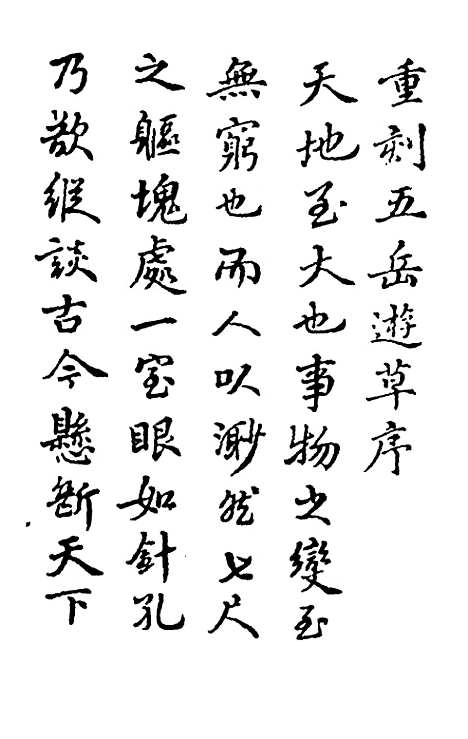 重刻五岳遊草序
天地至大也事物之變至
無窮也而人以渺然七尺
之軀塊處一室眼如針孔
乃欲縱談古今懸斷天下